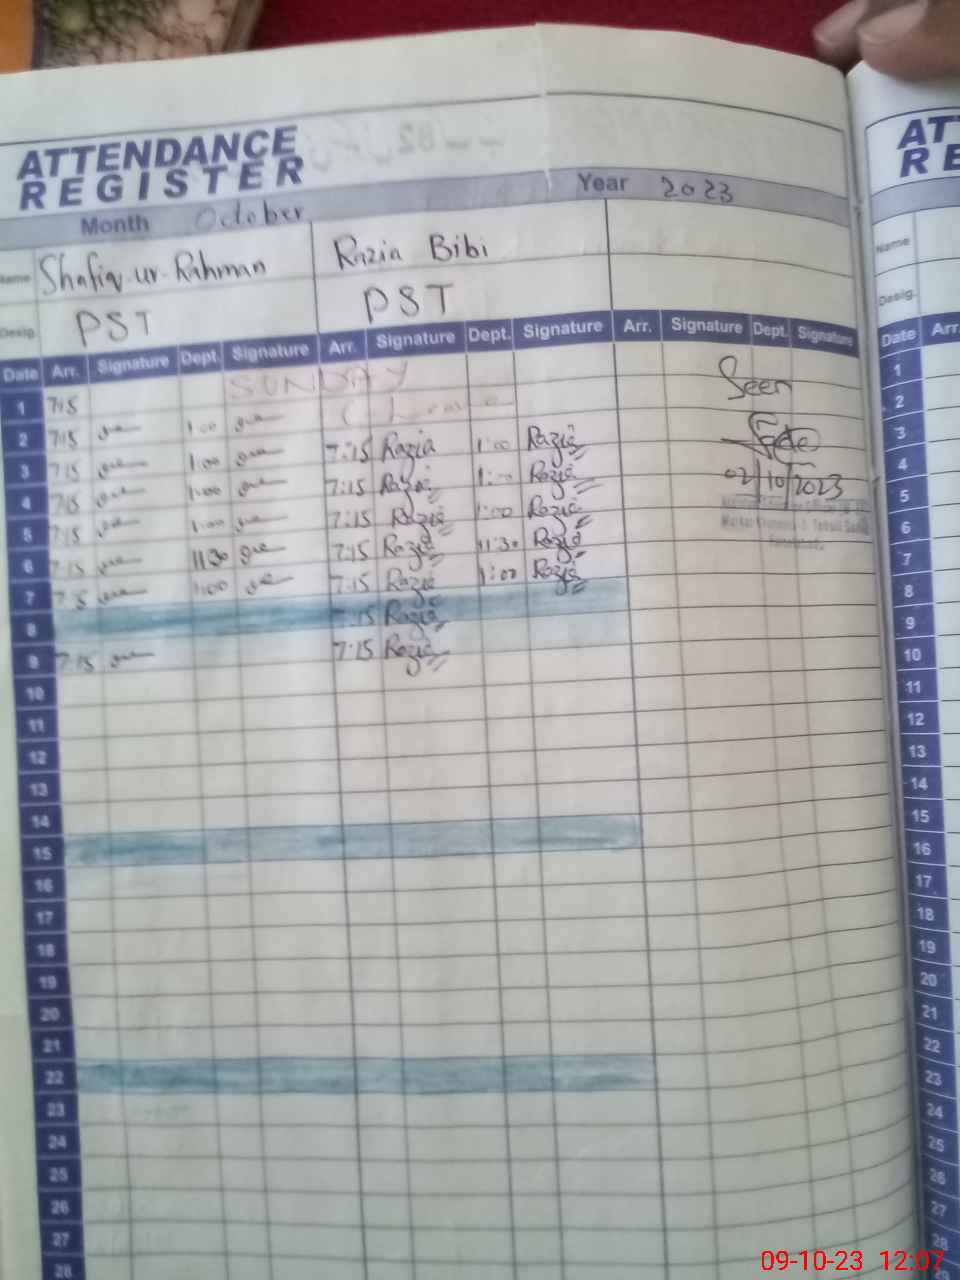 ATTENDANCE
REGISTER
Month October Year 2023
Name Shafiq-ur-Rahman Razia Bibi
Desig. PST PST
Date Arr. Signature Dept. Signature Arr. Signature Dept. Signature Arr. Signature Dept. Signature
SUNDAY
1 7:15 Seen
2 7:15 1:00 Leave
3 7:15 1:00 7:15 Razia 1:00 Razia
4 7:15 1:00 7:15 Razia 1:00 Razia 02/10/2023
5 7:15 1:00 7:15 Razia 1:00 Razia
6 7:15 11:30 7:15 Razia 11:30 Razia
7 7:15 1:00 7:15 Razia 1:00 Razia
8 7:15 Razia
9 7:15 7:15 Razia
10
11
12
13
14
15
16
17
18
19
20
21
22
23
24
25
26
27
28
AT
RE
Name
Desig.
Date Arr.
1
2
3
4
5
6
7
8
9
10
11
12
13
14
15
16
17
18
19
20
21
22
23
24
25
26
27
28
29
09-10-23 12:07